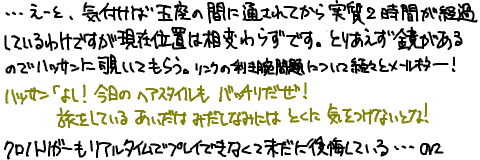 …えーと、気付けば玉座の間に通されてから実質2時間が経過
しているわけですが現在位置は相変わらずです。とりあえず鏡がある
のでハッサンに覗いてもらう。リンクの利き腕問題について続々とメールキター!
ハッサン「よし!今日のヘアスタイルも バッチリだぜ!
旅をしている あいだは みだしなみには とくに 気をつけないとな!
クロノトリガーもリアルタイムでプレイできなくて未だに後悔している…orz